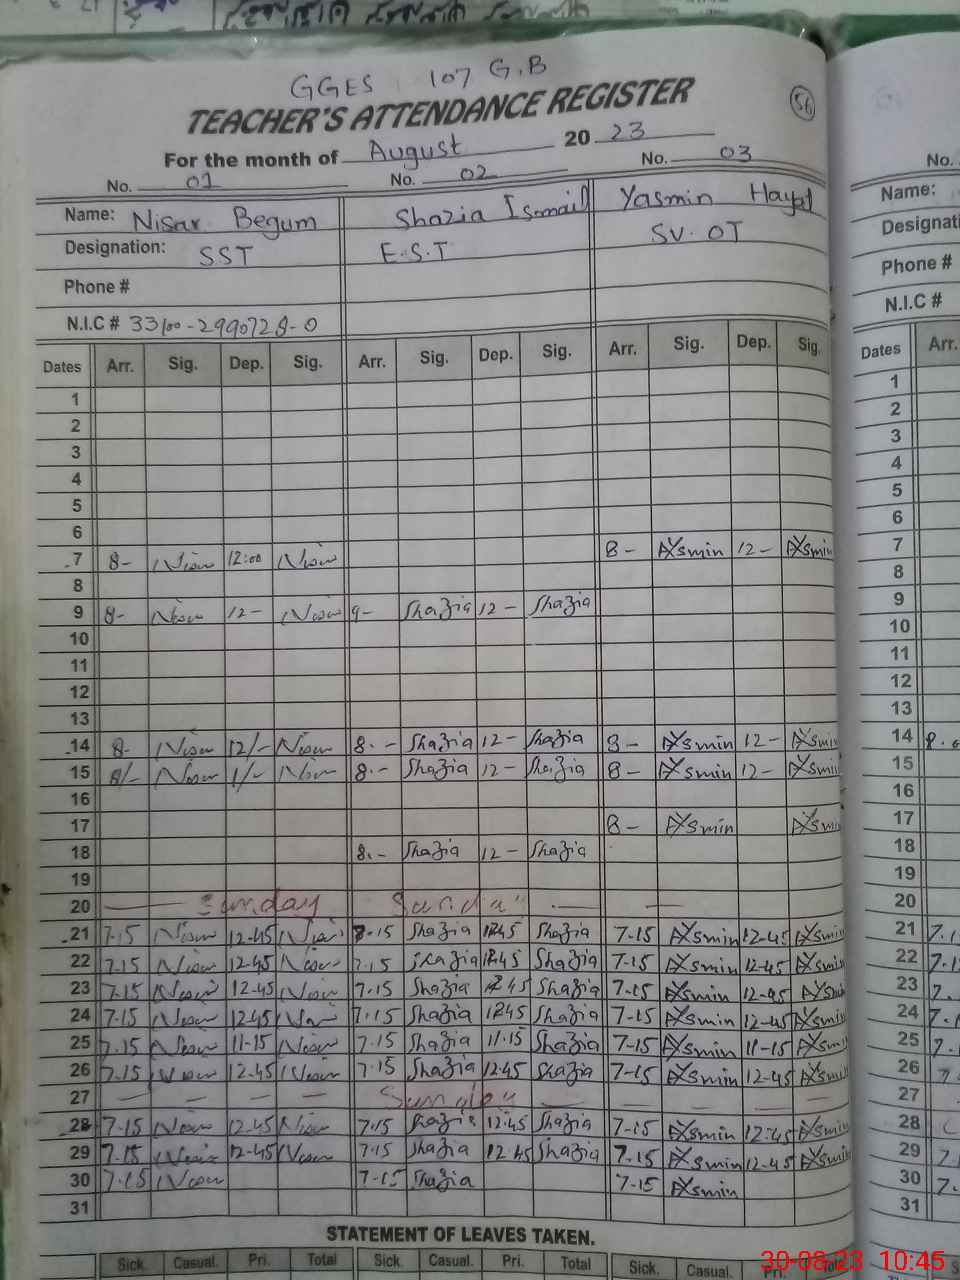 GGES 107 G.B
TEACHER'S ATTENDANCE REGISTER
56
For the month of August 20 23
No. 01 No. 02 No. 03
Name: Nisar Begum Shazia Ismail Yasmin Hayat
Designation: SST E.S.T SV.OT
Phone #
N.I.C # 33100-2990728-0
Dates Arr. Sig. Dep. Sig. Arr. Sig. Dep. Sig. Arr. Sig. Dep. Sig.
1
2
3
4
5
6
7 8- Nisar 12:00 Nisar 8- Yasmin 12- Yasmin
8
9 8- Nisar 12- Nisar 9- Shazia 12- Shazia
10
11
12
13
14 8- Nisar 12/- Nisar 8.- Shazia 12- Shazia 8- Yasmin 12- Yasmin
15 8/- Nisar 1/- Nisar 8.- Shazia 12- Shazia 8- Yasmin 12- Yasmin
16
17 8- Yasmin Yasmin
18 8.- Shazia 12- Shazia
19
20 — Sunday Sunday — —
21 7.15 Nisar 12-45 Nisar 7-15 Shazia 1245 Shazia 7-15 Yasmin 12-45 Yasmin
22 7.15 Nisar 12-45 Nisar 7.15 Shazia 1245 Shazia 7-15 Yasmin 12-45 Yasmin
23 7-15 Nisar 12-45 Nisar 7.15 Shazia 1245 Shazia 7-15 Yasmin 12-45 Yasmin
24 7-15 Nisar 12-45 Nisar 7.15 Shazia 1245 Shazia 7-15 Yasmin 12-45 Yasmin
25 7.15 Nisar 11-15 Nisar 7.15 Shazia 11.15 Shazia 7-15 Yasmin 11-15 Yasmin
26 7.15 Nisar 12-45 Nisar 7.15 Shazia 12.45 Shazia 7-15 Yasmin 12-45 Yasmin
27 — — — — Sunday — — — — —
28 7-15 Nisar 12-45 Nisar 7.15 Shazia 12.45 Shazia 7-15 Yasmin 12:45 Yasmin
29 7-15 Nisar 12-45 Nisar 7.15 Shazia 12.45 Shazia 7.15 Yasmin 12-45 Yasmin
30 7-15 Nisar 7-15 Shazia 7-15 Yasmin
31
STATEMENT OF LEAVES TAKEN.
Sick. Casual. Pri. Total Sick. Casual. Pri. Total Sick. Casual. Pri. Total
No.
Name:
Designati
Phone #
N.I.C #
Dates Arr.
1
2
3
4
5
6
7
8
9
10
11
12
13
14
15
16
17
18
19
20
21
22
23
24
25
26
27
28
29
30
31
30-08-23 10:45